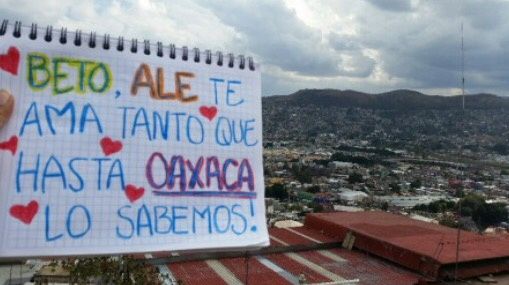 BETO, ALE TE
AMA TANTO QUE
HASTA OAXACA
LO SABEMOS.